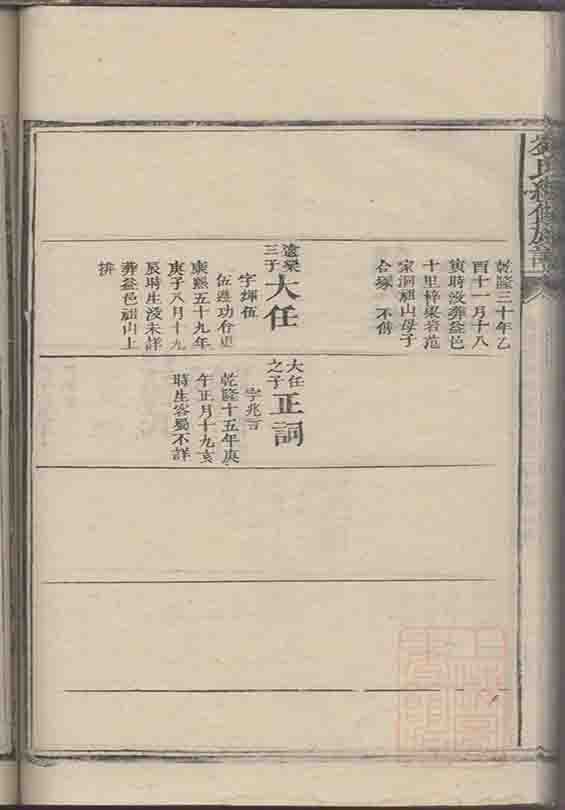 乾隆三十年乙
酉十一月十八
寅時沒葬益邑
十里梓梁岩范
家洞祖山母子
合塚 不傳
遠梁
三子
大任
字輝伍
伍進功名更
康熙五十九年
庚子八月十九
辰時生沒未詳
葬益邑祖山上
排
大任
之子
正詞
字兆言
乾隆十五年庚
午正月十九亥
時生容蜀不詳